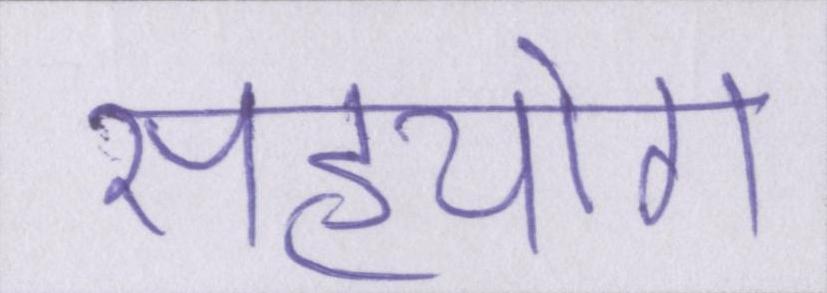 सहयोग